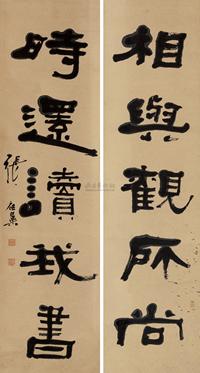 相與觀所尚
時還讀我書
張在辛